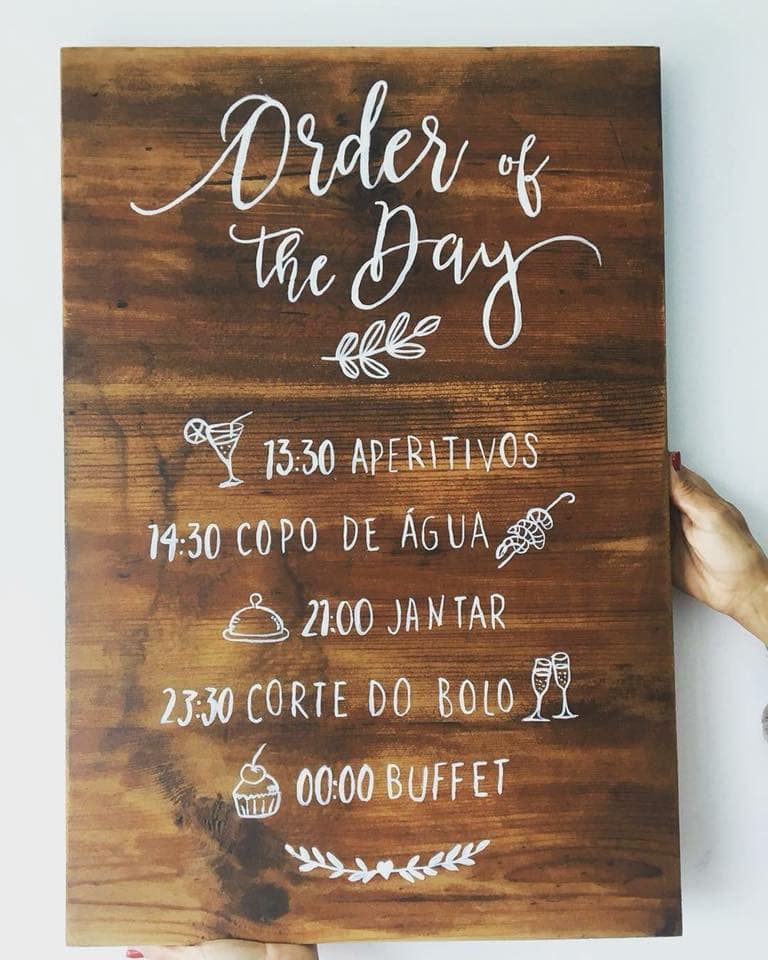 Order of
the Day
13:30 APERITIVOS
14:30 COPO DE ÁGUA
21:00 JANTAR
23:30 CORTE DO BOLO
00:00 BUFFET